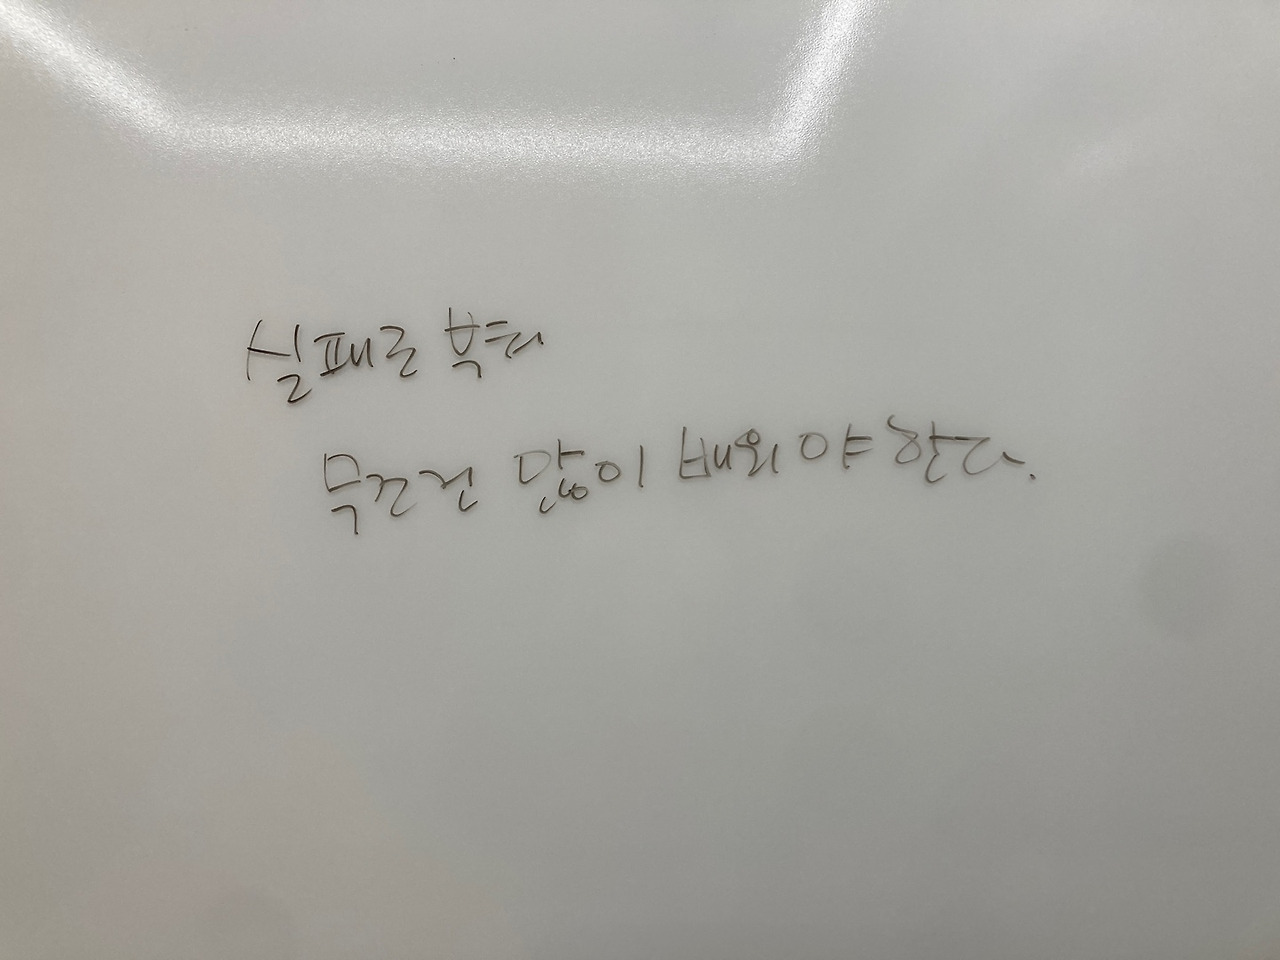 실패로 부터
무조건 많이 배워야 한다.